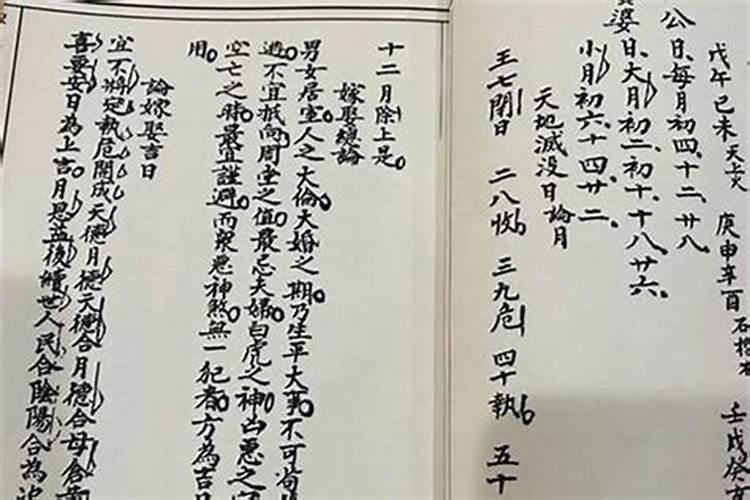 戊午己未天上火 庚申辛酉石榴木 壬戌癸
公日每月初四十二、廿八
婆日大月初二初十、十八、廿六、
小月初六十四廿二、
天地滅没日論月
正七閉日 二八收 三九危 四十執 五十
十二月除上是
嫁娶總論
男女居室人之大倫大婚之期乃生平大事不可苟
避不宜抵向周堂之值最忌夫婦白虎之神凶惡之
空亡之時最宜謹避而衆惡神煞無一犯者方為吉日
用
論嫁娶吉日
宜不將定執危開成天德月德天德合月德合母倉
喜要安日為上吉月恩益後續世人民合陰陽合為次